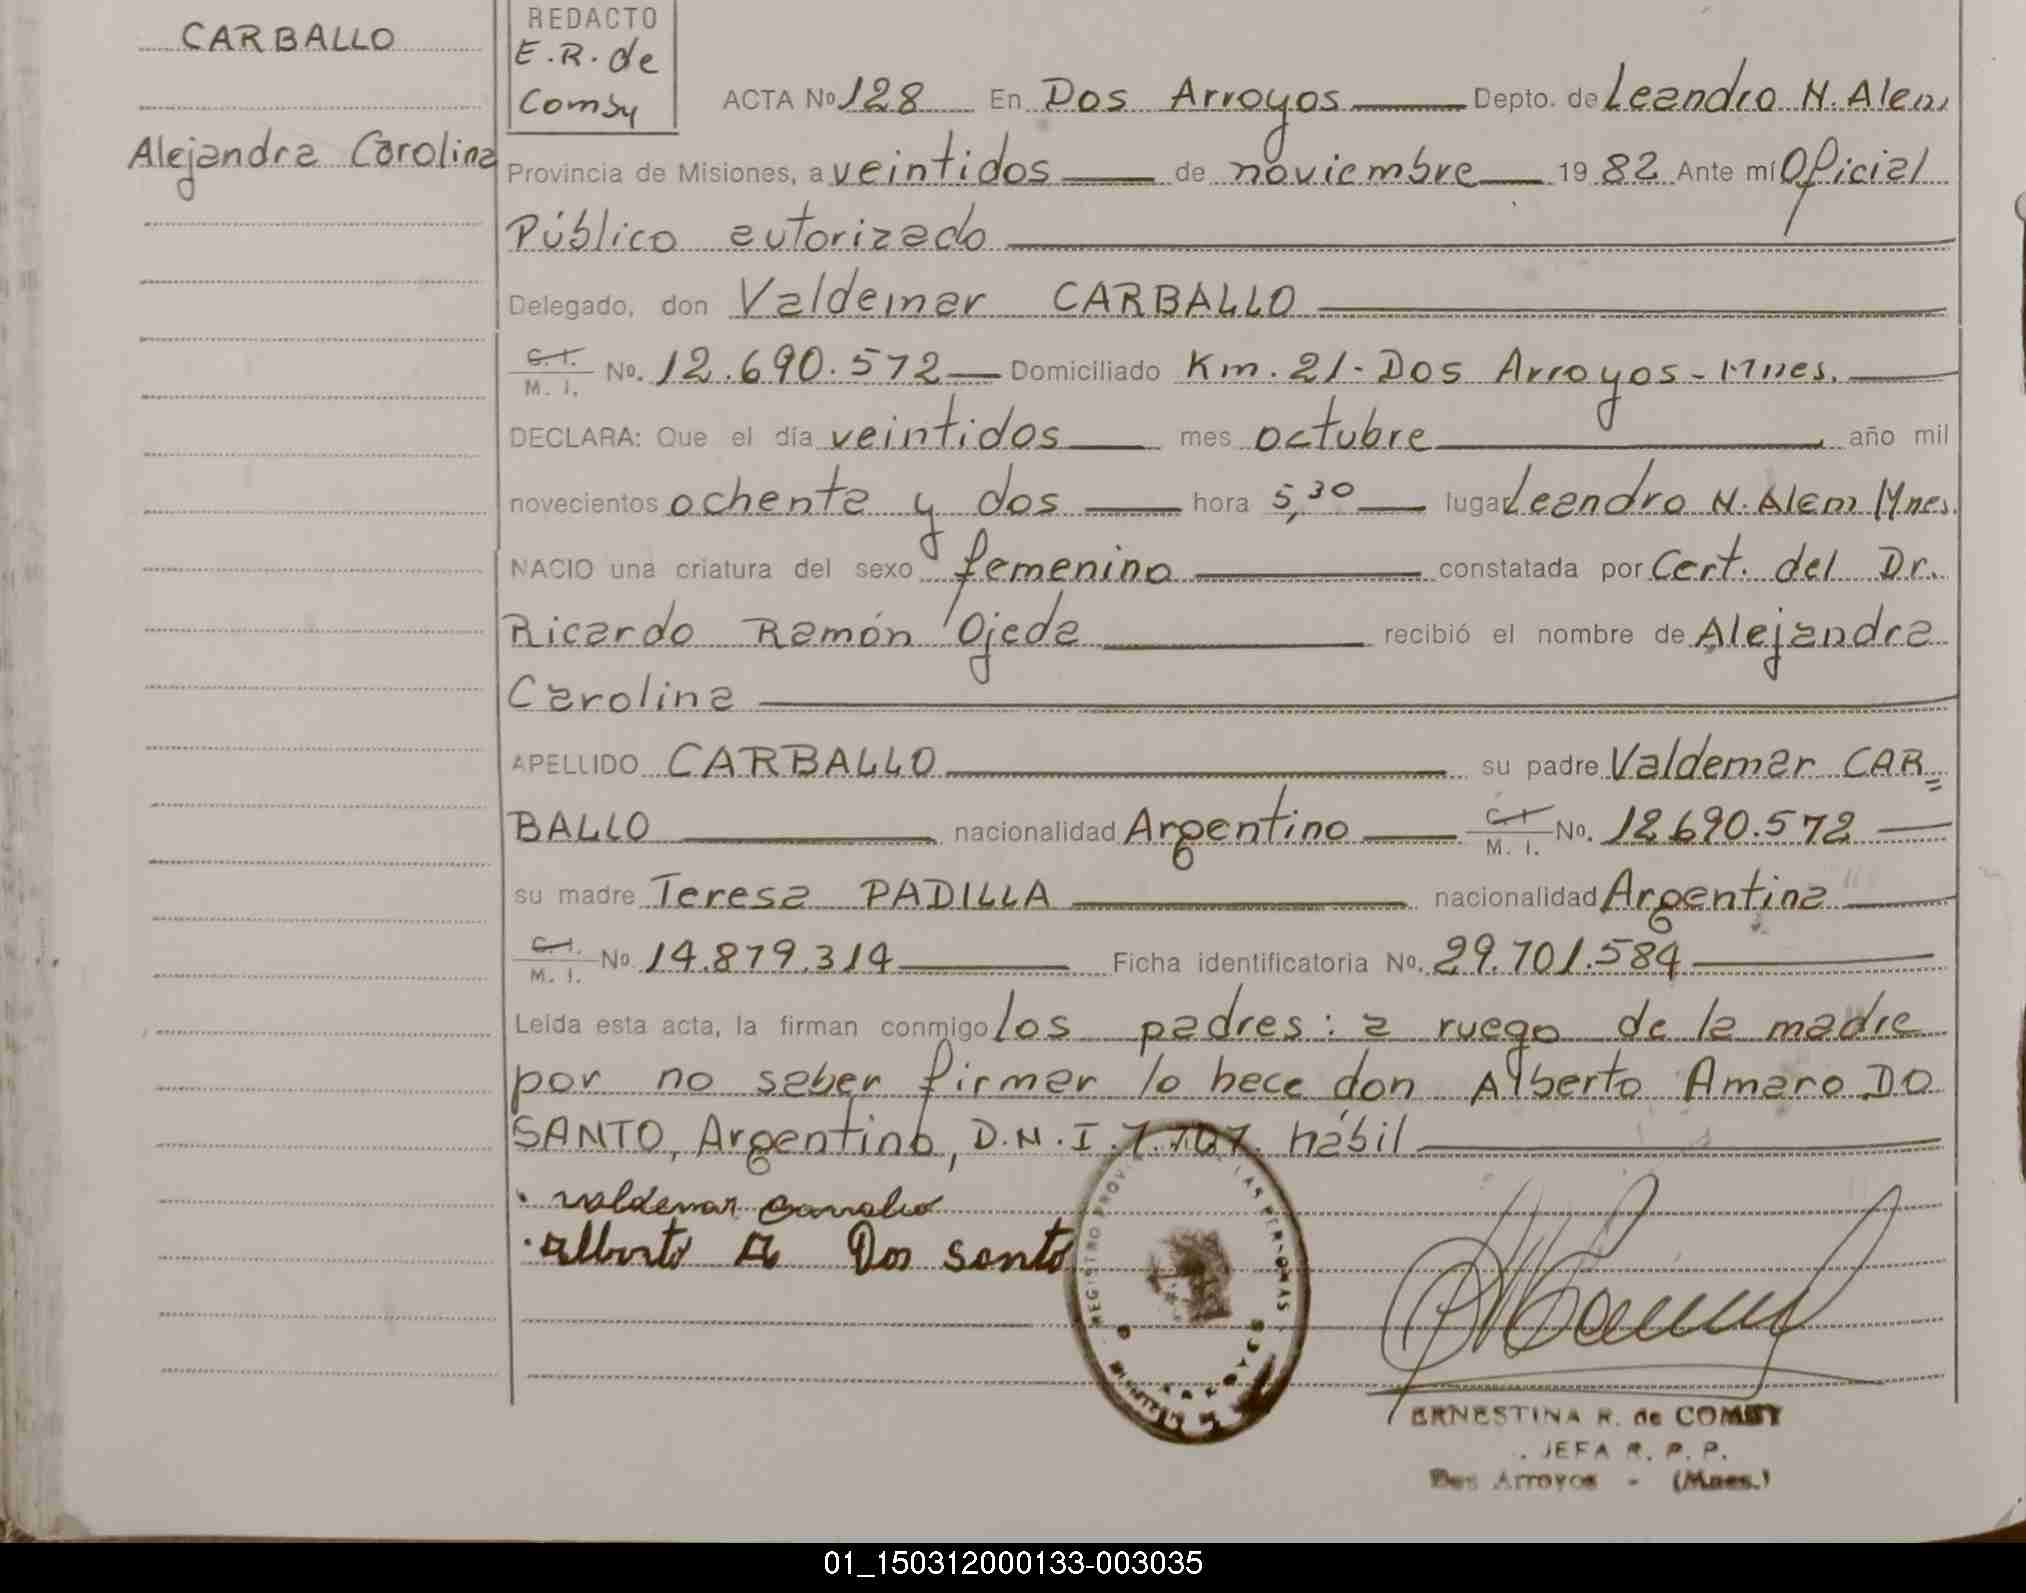 CARBALLO
Alejandra Carolina
REDACTO
E.R. de
Comby
ACTA No 128 En Dos Arroyos Depto. de Leandro N. Alem
Provincia de Misiones, a veintidos de noviembre 1982 Ante mí Oficial
Público autorizado
Delegado, don Valdemar CARBALLO
C.I. M. I. No. 12.690.572 Domiciliado Km. 21- Dos Arroyos- Mnes.
DECLARA: Que el día veintidos mes octubre año mil
novecientos ochenta y dos hora 5,30 lugar Leandro N. Alem Mnes.
NACIO una criatura del sexo femenino constatada por Cert. del Dr.
Ricardo Ramón Ojeda recibió el nombre de Alejandra
Carolina
APELLIDO CARBALLO su padre Valdemar CAR=
BALLO nacionalidad Argentino C.I. M. I. No. 12.690.572
su madre Teresa PADILLA nacionalidad Argentina
C.I. M. I. No 14.879.314 Ficha identificatoria No. 29.701.584
Leída esta acta, la firman conmigo los padres: a ruego de la madre
por no saber firmar lo hace don Alberto Amaro DO
SANTO, Argentino, D.N.I. hábil
Valdemar Carvalho
Alberto A Dos Santo
REGISTRO
ERNESTINA R. de COMBY
JEFA R. P. P.
Dos Arroyos - (Mnes.)
01_150312000133-003035